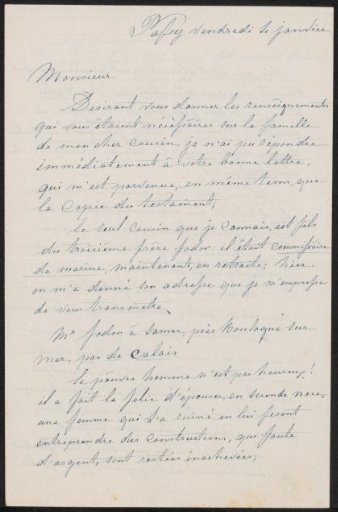 vendredi 4 janvier
Monsieur
Desirant vous donner les renseignements
qui vous étaient nécéssaires sur la famille
de mon cher cousin, je n'ai pu répondre
immédiatement à votre bonne lettre,
qui m'est parvenue, en même tems, que
la Copie du testament;
le seul Cousin que je connais, est fils
du troisième frère fodor: il était commissaire
de marine, maintenant, en retraite; hier
on m'a donné son adresse que je m'empresse
de vous transmetre.
Mr fodor à Samer, près Boulogne sur
mer, pas de Calais
le pauvre homme n'est pas heureux!
il a fait la folie d'épouser, en seconde noce,
une femme qui l'a ruiné en lui fesant
entreprendre des constructions, qui faute
d'argent, sont restées inachevées;